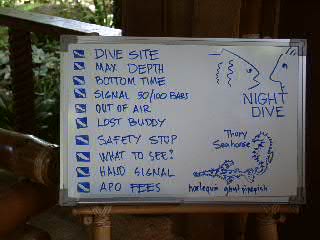 DIVE SITE
MAX DEPTH
BOTTOM TIME
SIGNAL 50/100 BARS
OUT OF AIR
LOST BUDDY
SAFETY STOP
WHAT TO SEE?
HAND SIGNAL
APO FEES
NIGHT
DIVE
Thorny
Seahorse
harlequin ghost pipefish